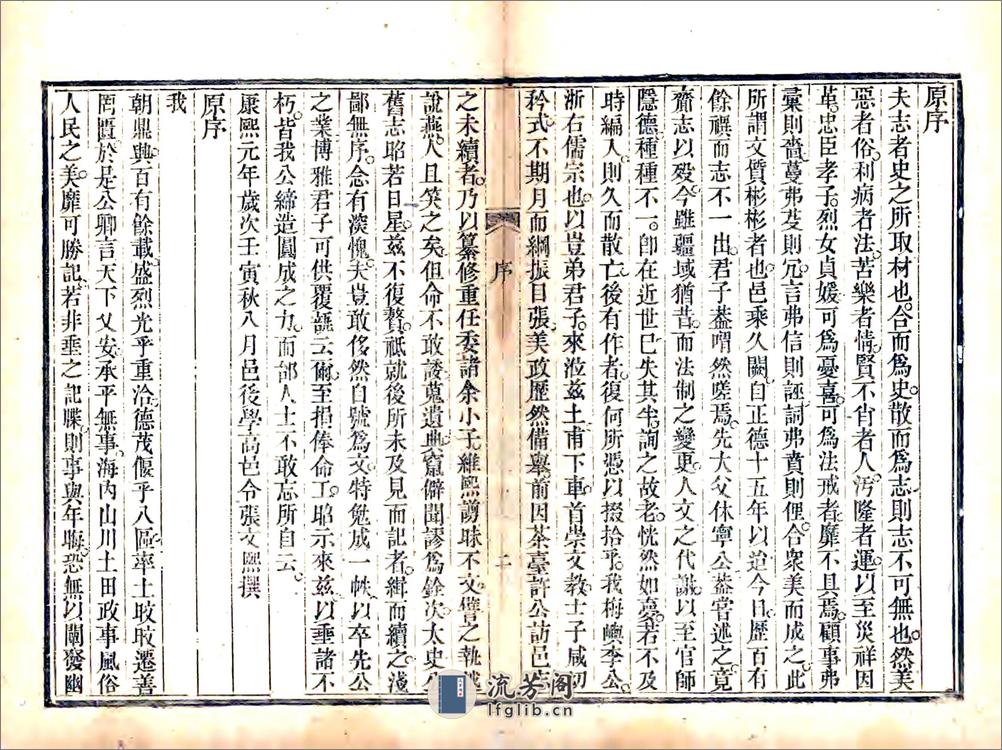 原序
夫志者史之所取材也合而爲史散而爲志則志不可無也然美
惡者俗利病者法苦樂者情賢不肖者人汚隆者運以至災祥因
革忠臣孝子烈女貞媛可爲憂喜可爲法戒者靡不具焉顧事弗
彙則嗇蔓弗芟則冗言弗信則誣詞弗賁則俚合衆美而成之此
所謂文質彬彬者也邑乘久闕自正德十五年以迨今日歷百有
餘禩而志不一出君子葢喟然嗟焉先大父休寧公葢嘗述之竟
齎志以殁今雖疆域猶昔而法制之變更人文之代謝以至官師
隱德種種不一卽在近世已失其半詢之故老恍然如夢若不及
時編入則久而散亡後有作者復何所憑以掇拾乎我梅嶼李公
浙右儒宗也以豈弟君子來涖兹土甫下車首崇文教士子咸切
矜式不期月而綱振目張美政歷然備舉前因茶臺許公訪邑志
之未續者乃以纂修重任委諸余小子維熙謭昧不文譬之執
說燕人且笑之矣但命不敢諉蒐遺典窺僻聞謬爲銓次太史公
舊志昭若日星兹不復贅祗就後所未及見而記者緝而續之淺
鄙無序念有深愧夫豈敢侈然自號爲文特勉成一帙以卒先公
之業博雅君子可供覆瓿云爾至捐俸命工昭示來兹以垂諸不
朽皆我公締造圓成之力而鄙人士不敢忘所自云
康熙元年歲次壬寅秋八月邑後學高邑令張文熙撰
原序
我
朝鼎興百有餘載盛烈光乎重洽德茂偃乎八區率土敃敃遷善
罔匱於是公卿言天下乂安承平無事海內山川土田政事風俗
人民之美靡可勝記若非垂之記牒則事與年晦恐無以闡發幽
序
二
流芳閣
lfglib.cn